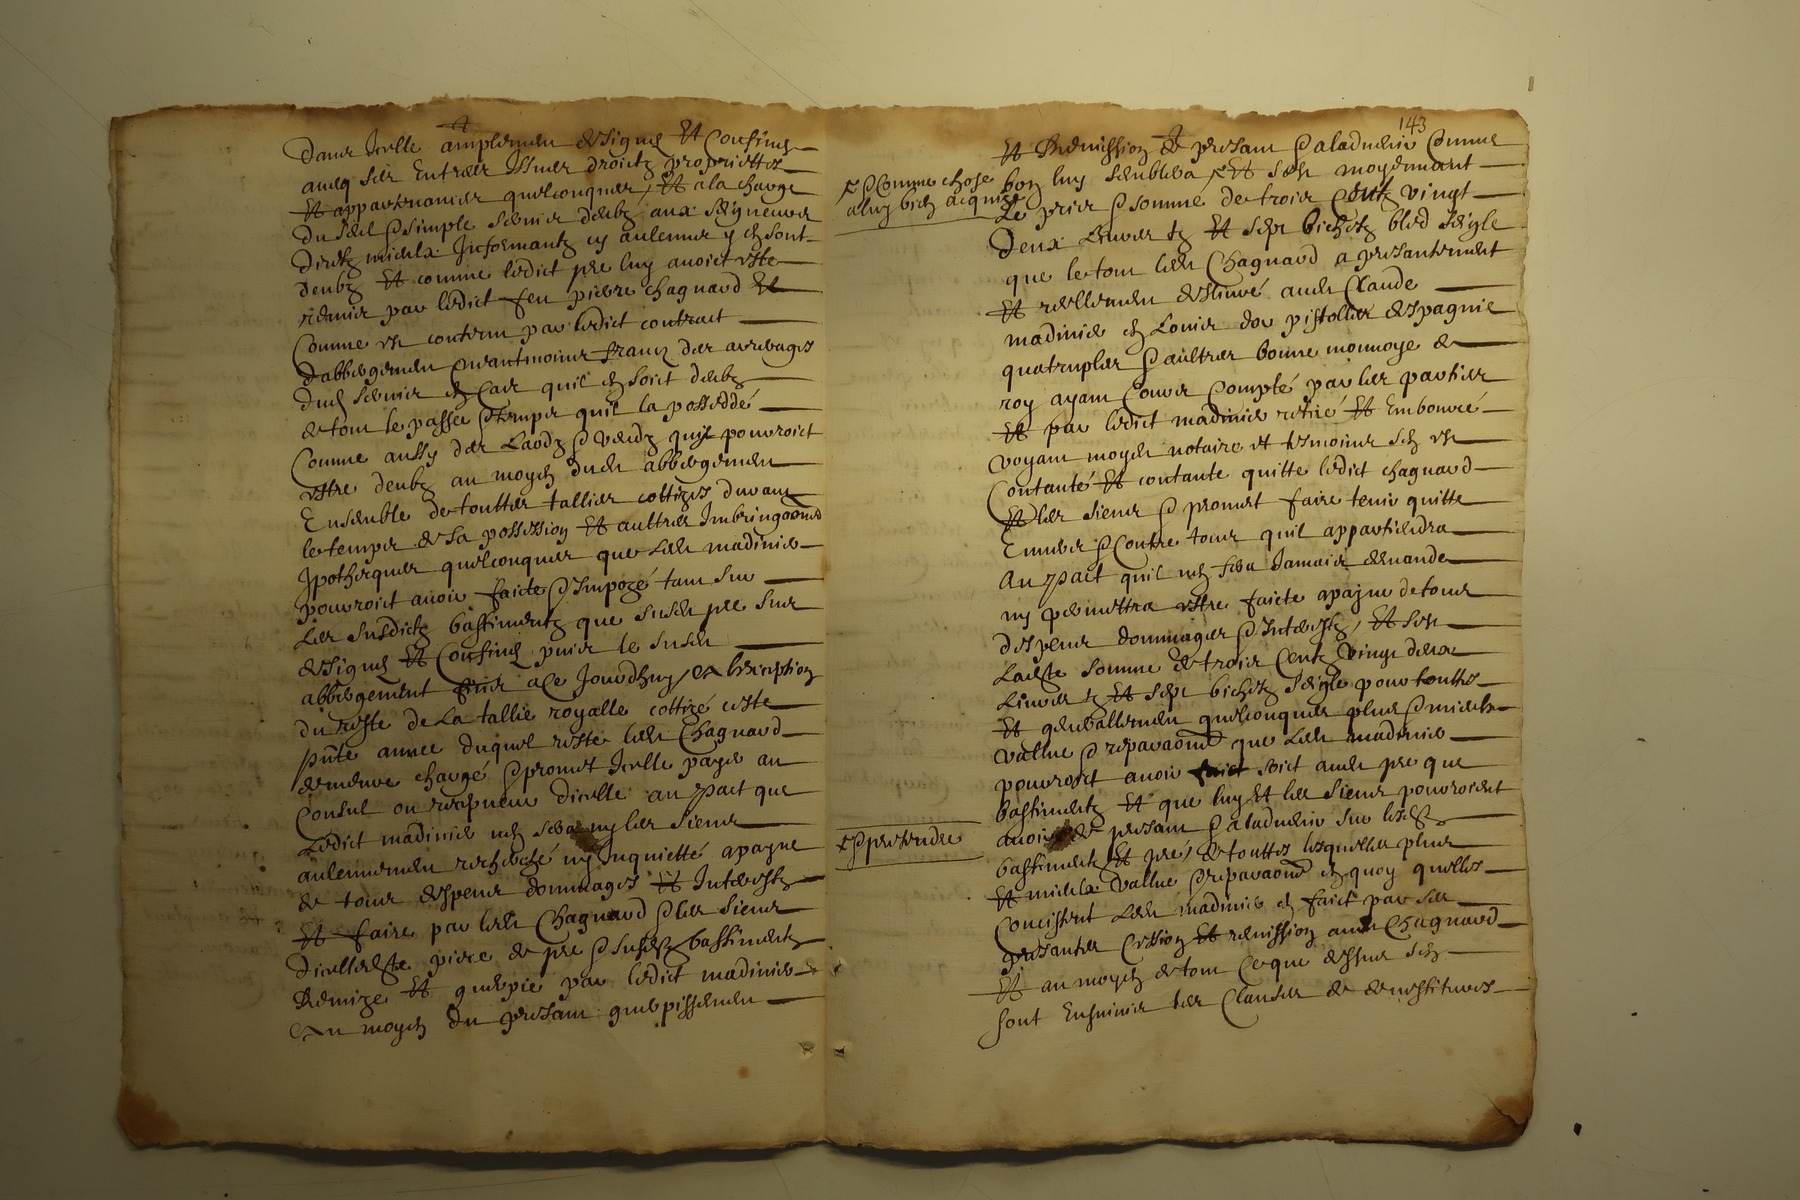 dans Icelle amplemen designé Et Confiné
aueq ses Entrees Issues droictz proprietes
Et appartenances quelconques, Et a la charge
du seul & simple seruis deubz aux seigneurs
directz mieulx Informantz cy aulcuns y en sont
deubz Et comme ledict pre luy auoict este
remis par ledict feu pierre chagnard Et
Comme est contenu par ledict contract
dabbergemen neantmoins francq des arrerages
dud seruis en Cas quil en soict deubz
de tout le passé & temps quil la posseddé
Comme aussy des Laodz & vendz quil pourroict
estre deubz au moyen dud abbergemen
Ensemble de touttes tallies cottizes durant
le temps de sa possession Et aultres Imbringaones
Ipotheques quelconques que led madinier
pourroict auoir faicte & Imposé tant sur
les susdictz bastimentz que susd pre sus
designé Et Confiné puis le susd
abbergement a ce Jourdhuy, a lexception
du reste de La tallie royalle cottizé ceste
pnte annee duquel reste led Chagnard
demeure chargé & promet Icelle payer au
Consul ou recepueur dicelle au pact que
Ledict madinier nen sera ny les siens
aulcunemen recherché ny Inquietté a payne
de tous despens dommages Et Interestz
Et faire par led Chagnard & les siens
dicelle piece de pre & susd bastimentz
Remize Et guerpie par ledict madinier
Au moyen du presant guerpissemen
143
Et Remission de presant & aladuenir Comme
bon luy semblera Et sest moyennant
& Comme chose
a luy bien acquize
Le prix & somme de trois Centz vingt
deux Liures tz Et sept bichetz bled seigle
que le tout led Chagnard a presantement
Et reellemen desliuré aud Claude
madinier en Louis dor pistolles despagnie
quatruples & aultres bonne monnoye de
roy ayant Cours Compté par les parties
Et par ledict madinier retiré Et Embourcé
voyant moyd notaire et tesmoins sen est
Contanté Et contante quitte ledict chagnard
Et les siens & promet faire tenir quitte
Enuers & Contre tous quil appartiendra
Au pact quil nen sera Jamais demande
ny permettra estre faicte a payne de tous
despens dommages & Interestz, Et sest
Ladte somme de trois Centz vingt deux
Liures tz Et sept bichetz seigle pour touttes
Et generallemen quelconques plus & mieulx
vallue & reparaons que led madinier
pourroict auoir faict soict aud pre que
bastimentz Et que luy Et les siens pourroient
auoir de presant & aladuenir sur lesd
& pretendre
bastimentz Et pré, de touttes lesquelles plus
Et mieulx vallue & reparaons en quoy quelles
Concistent Led madinier en faict par ses
presantes Cession Et remission aud Chagnard
Et au moyen de tout Ceque dessus sen
sont Ensuiuies les Clauses de deuestitures